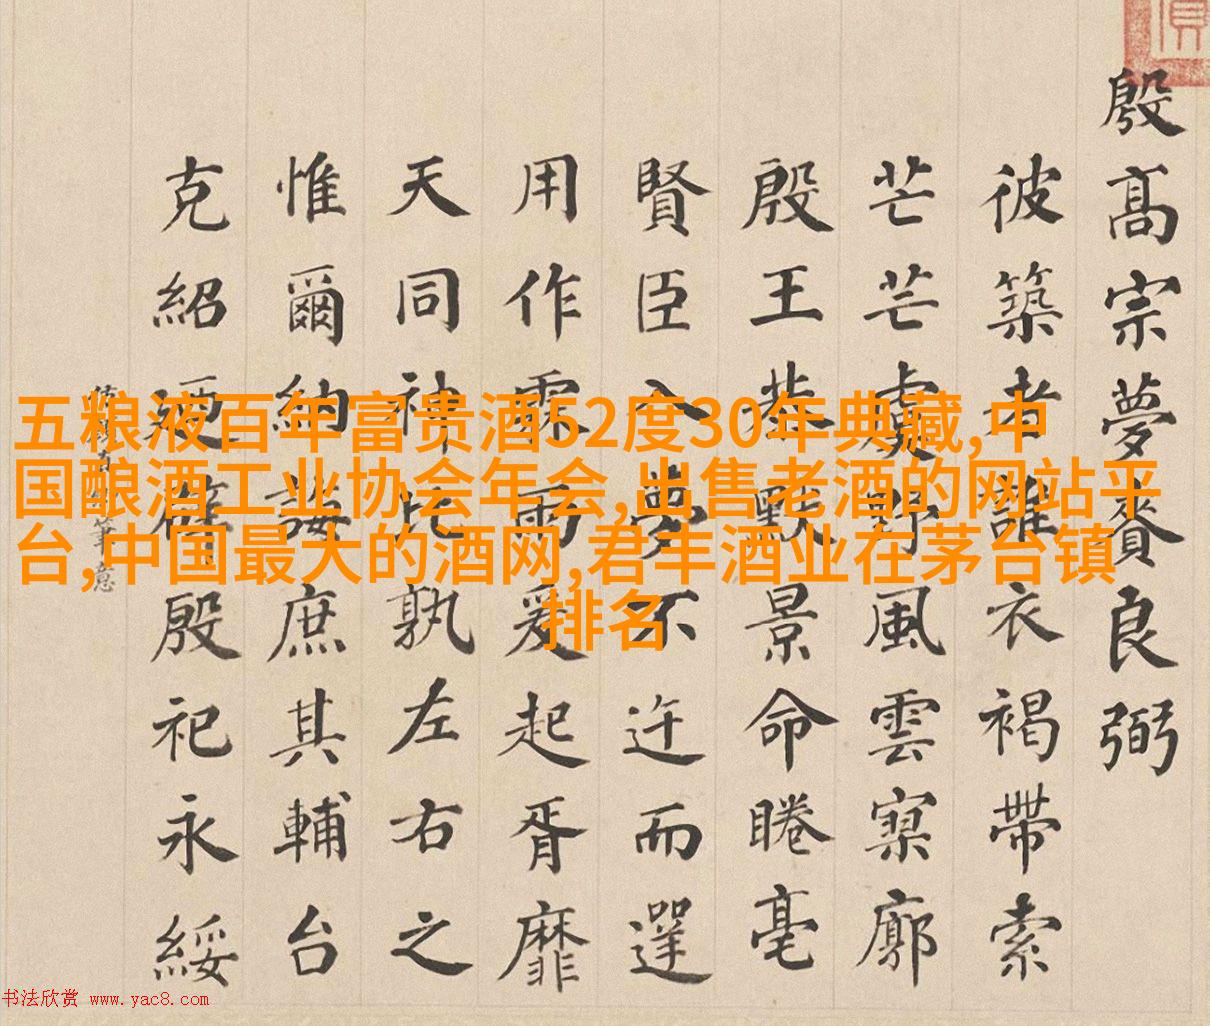 殷髙宗夢賚良弼
彼築者誰衣褐帶索
芒芒虞野風雲寥廓
殷王恭默景命睠毫
賢臣入夢不迕而遻
用作霖雨爰起胥靡
天同神比孰左右之
惟爾納誨庶其輔台
克紹迺辟殷祀永綏
筆意
五粮液百年富贵酒52度30年典藏,中
国酿酒工业协会年会,出售老酒的网站平
台,中国最大的酒网,君丰酒业在茅台镇
排名
书法欣赏 www.yac8.com